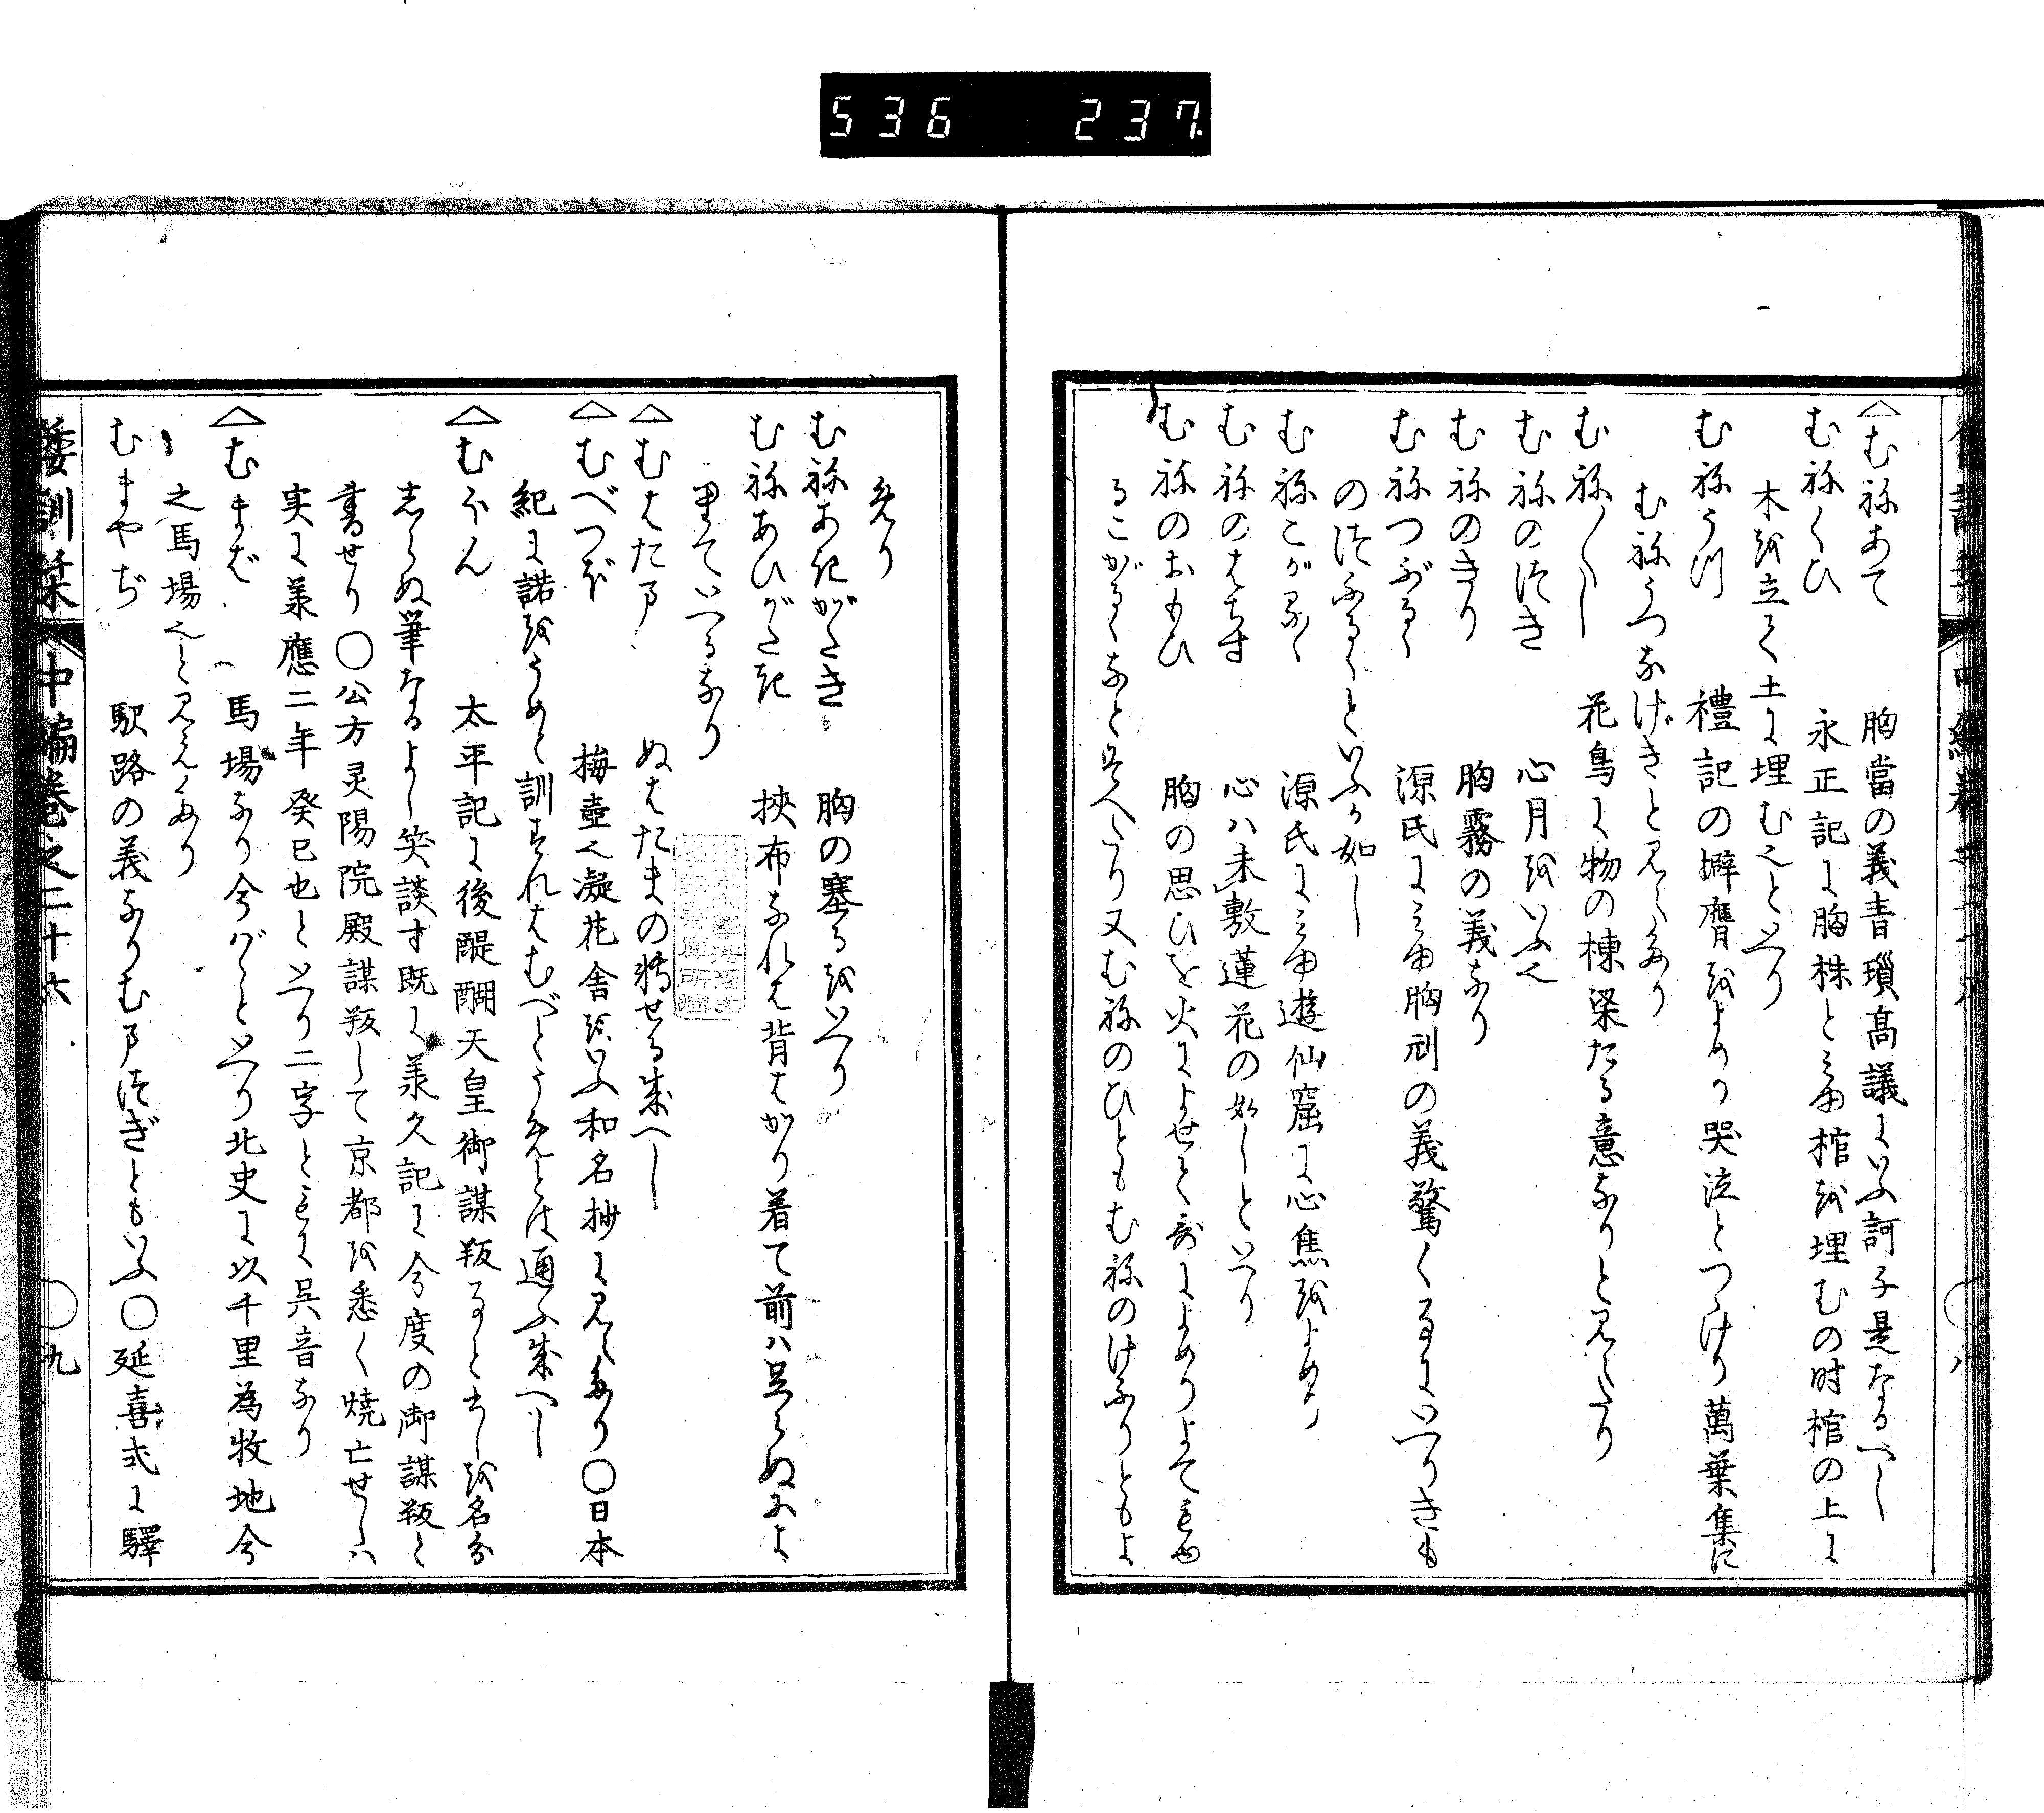 536 237
△むねあて 胸當の義青瑣高議にいふ訶子是なるへし
むねくひ 永正記に胸株と三由棺を埋むの时棺の上に
木を立て土に埋む也といへり
むねうつ 禮記の擗膺をよめり哭泣とつゝけり萬葉集に
むねうつなげきと見えたり
むね〳〵し 花鳥に物の棟梁たる意なりと見えたり
むねのつき 心月をいふ也
むねのきり 胸霧の義なり
むねつぶるゝ 源氏にみゆ胸刓の義驚くるにいへりきも
のつふるゝといふか如し
むねこがるゝ 源氏にみゆ遊仙窟に心焦をよめり
むねのはちす 心ハ未敷蓮花の如しといへり
むねのおもひ 胸の思ひを火によせて哥によめりよてもゆ
るこがるゝなとそへたり又むねのひともむねのけふりともよ
めり
むねあきがたき 胸の塞るをいへり
むねあひがたき 挾布なれは背はかり着て前ハ足らぬによ
りていへるなり
△むはたま ぬはたまの転せる成へし
△むべつぼ 梅壺也凝花舎をいふ和名抄に見えたり〇日本
紀に諾をうめと訓すれはむべとうめとは通ふ成へし
△むほん 太平記に後醍醐天皇御謀叛ると出しを名分
志らぬ筆なるよし笑談す既に羕久記に今度の御謀叛と
書せり〇公方灵陽院殿謀叛して京都を悉く焼亡せしハ
実に羕應二年癸巳也といへり二字ともに呉音なり
△むまば 馬場なり今ばゞといへり北史に以千里為牧地今
之馬場也と見えたり
むまやぢ 駅路の義なりむまつぎともいふ〇延喜式に驛
倭訓栞 中編巻之二十六 〇九